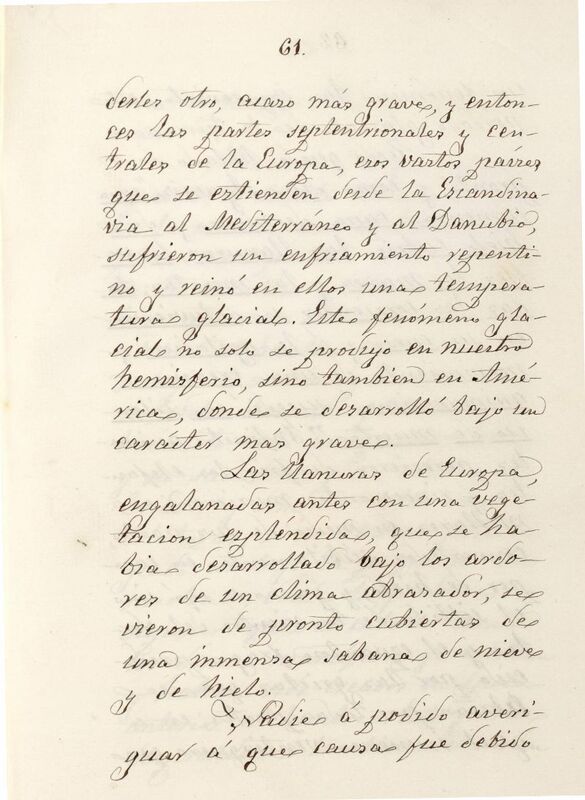 61.
derles otro, acaso más grave, y enton-
ces las partes septentrionales y cen-
trales de la Europa, esos vastos países
que se estienden desde la Escandina-
via al Mediterráneo y al Danubio,
sufrieron un enfriamiento repenti-
no y reinó en ellos una tempera-
tura glacial. Este fenómeno gla-
cial no solo se produjo en nuestro
hemisferio, sino tambien en Amé-
rica, donde se desarrolló bajo un
carácter más grave.
Las llanuras de Europa,
engalanadas antes con una vege-
tacion espléndida, que se ha-
bia desarrollado bajo los ardo-
res de un clima abrasador, se
vieron de pronto cubiertas de
una inmensa sábana de nieve
y de hielo.
Nadie á podido averi-
guar á que causa fue debido